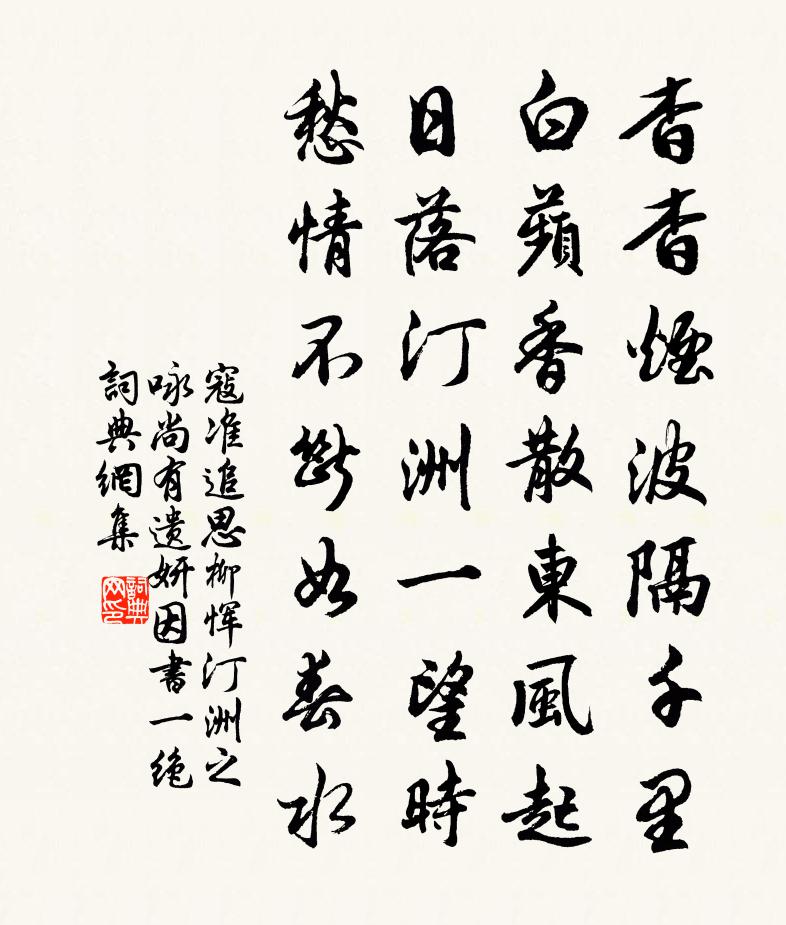 杳杳煙波隔千里
白蘋香散東風起
日落汀洲一望時
愁情不斷如春水
寇准追思柳惲汀洲之
咏尚有遺妍因書一絕
詞典網集
詞典
网印